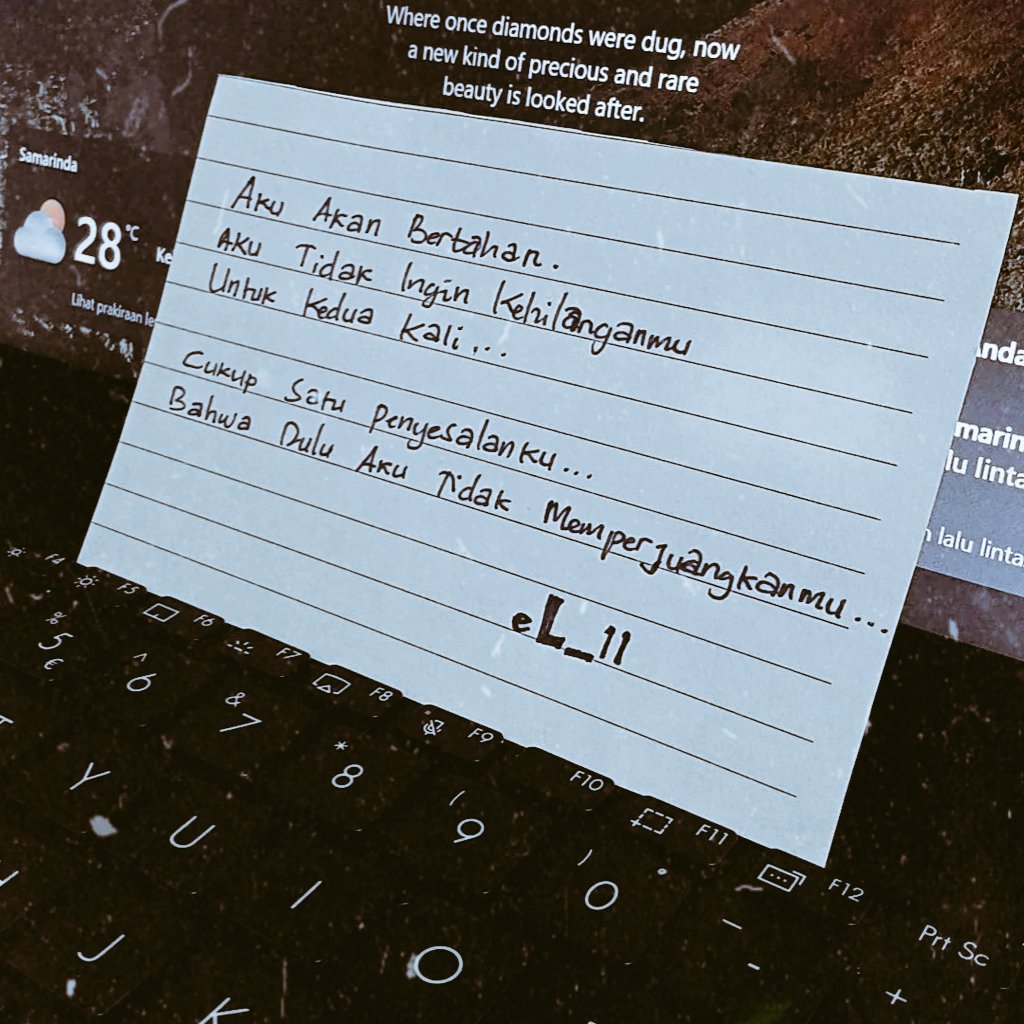 Where once diamonds were dug, now
a new kind of precious and rare
beauty is looked after.
Samarinda
28°C
Ke
Lihat prakiraan le
Aku Akan Bertahan.
Aku Tidak Ingin Kehilanganmu
Untuk Kedua Kali...
Cukup Satu Penyesalanku...
Bahwa Dulu Aku Tidak Memperjuangkanmu...
eL_11
Anda
marin
lu linta
lalu linta
F4 F5 F6 F7 F8 F9 F10 F11 F12 Prt Sc
% 5 € ^ 6 & 7 * 8 ( 9 ) 0 ° - - +
Y U I O
J K